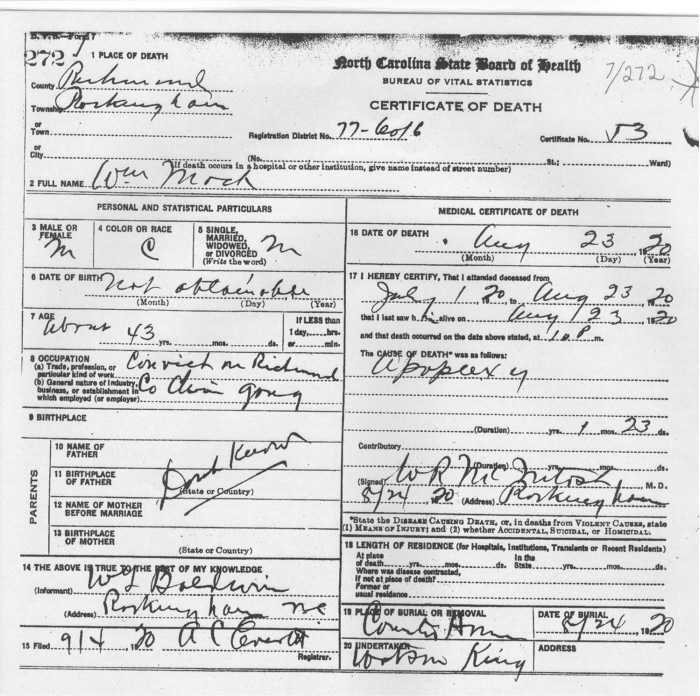 272
1 PLACE OF DEATH
North Carolina State Board of Health
7/272
BUREAU OF VITAL STATISTICS
County Richmond
Township Rockingham
CERTIFICATE OF DEATH
or
Town
Registration District No. 77-6016
Certificate No. 53
or
City
(No. St.; Ward)
(If death occurs in a hospital or other institution, give name instead of street number)
2 FULL NAME Wm Mock
PERSONAL AND STATISTICAL PARTICULARS
3 MALE OR FEMALE M
4 COLOR OR RACE C
5 SINGLE, MARRIED, WIDOWED, or DIVORCED (Write the word) M
6 DATE OF BIRTH Not obtainable
(Month) (Day) (Year)
7 AGE About 43 yrs. mos. ds.
If LESS than 1 day, hrs. or min.
8 OCCUPATION
(a) Trade, profession, or particular kind of work Convict on Richmond
(b) General nature of industry, business, or establishment in which employed (or employer) Co Chain gang
9 BIRTHPLACE
PARENTS
10 NAME OF FATHER
11 BIRTHPLACE OF FATHER
Dont Know
(State or Country)
12 NAME OF MOTHER BEFORE MARRIAGE
13 BIRTHPLACE OF MOTHER
(State or Country)
14 THE ABOVE IS TRUE TO THE BEST OF MY KNOWLEDGE
(Informant) W L Baldwin
(Address) Rockingham NC
15 Filed 9/4 1920 A C Everett
Registrar.
MEDICAL CERTIFICATE OF DEATH
16 DATE OF DEATH Aug 23 1920
(Month) (Day) (Year)
17 I HEREBY CERTIFY, That I attended deceased from
July 1 20, to Aug 23 1920
that I last saw him alive on Aug 23 1920
and that death occurred on the date above stated, at 10 P m.
The CAUSE OF DEATH* was as follows:
Apoplexy
(Duration) yrs. 1 mos. 23 ds.
Contributory
(Duration) yrs. mos. ds.
(Signed) W R McIntosh M. D.
8/24 1920 (Address) Rockingham
*State the DISEASE CAUSING DEATH, or, in deaths from VIOLENT CAUSES, state
(1) MEANS OF INJURY; and (2) whether ACCIDENTAL, SUICIDAL, or HOMICIDAL.
18 LENGTH OF RESIDENCE (for Hospitals, Institutions, Transients or Recent Residents)
At place of death yrs. mos. ds. In the State yrs. mos. ds.
Where was disease contracted, If not at place of death?
Former or usual residence
19 PLACE OF BURIAL OR REMOVAL
County Home
DATE OF BURIAL
8/24, 1920
20 UNDERTAKER
Watson King
ADDRESS